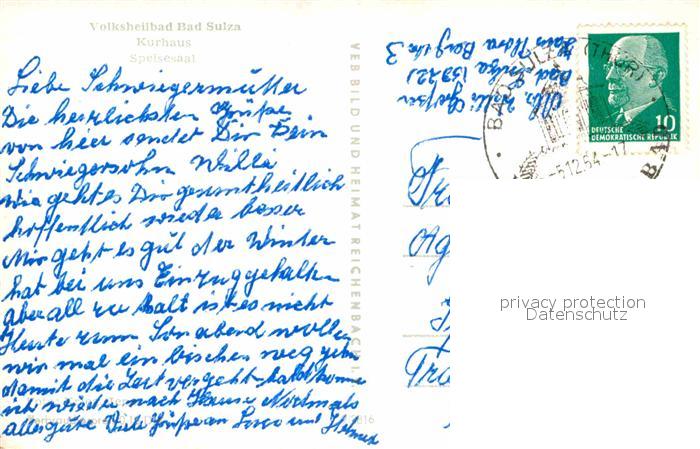 Volksheilbad Bad Sulza
Kurhaus
Speisesaal
Liebe Schwiegermutter
Die herzlichsten Grüße
von hier sendet Dir Dein
Schwiegersohn Willi
wie geht es Dir gesuntheitlich
hoffentlich wieder besser
Mir geht es gut der Winter
hat bei uns Einzug gehalten
aber all zu kalt ist es nicht
Heute zum Sonabend wollen
wir mal ein bischen weg gehn
damit die Zeit vergeht bald komme
ich wieder nach Hause Nochmals
alles gute Viele Grüße an Inge und Helmut
VEB BILD UND HEIMAT REICHENBACH I.
Abs. Willi
Bad Sulza (5322)
Haus Flora Bergstr. 3
BAD SULZA (THÜR)
-5.12.64-17
BAD
10
DEUTSCHE
DEMOKRATISCHE REPUBLIK
Fr
Ag
Tra
privacy protection
Datenschutz